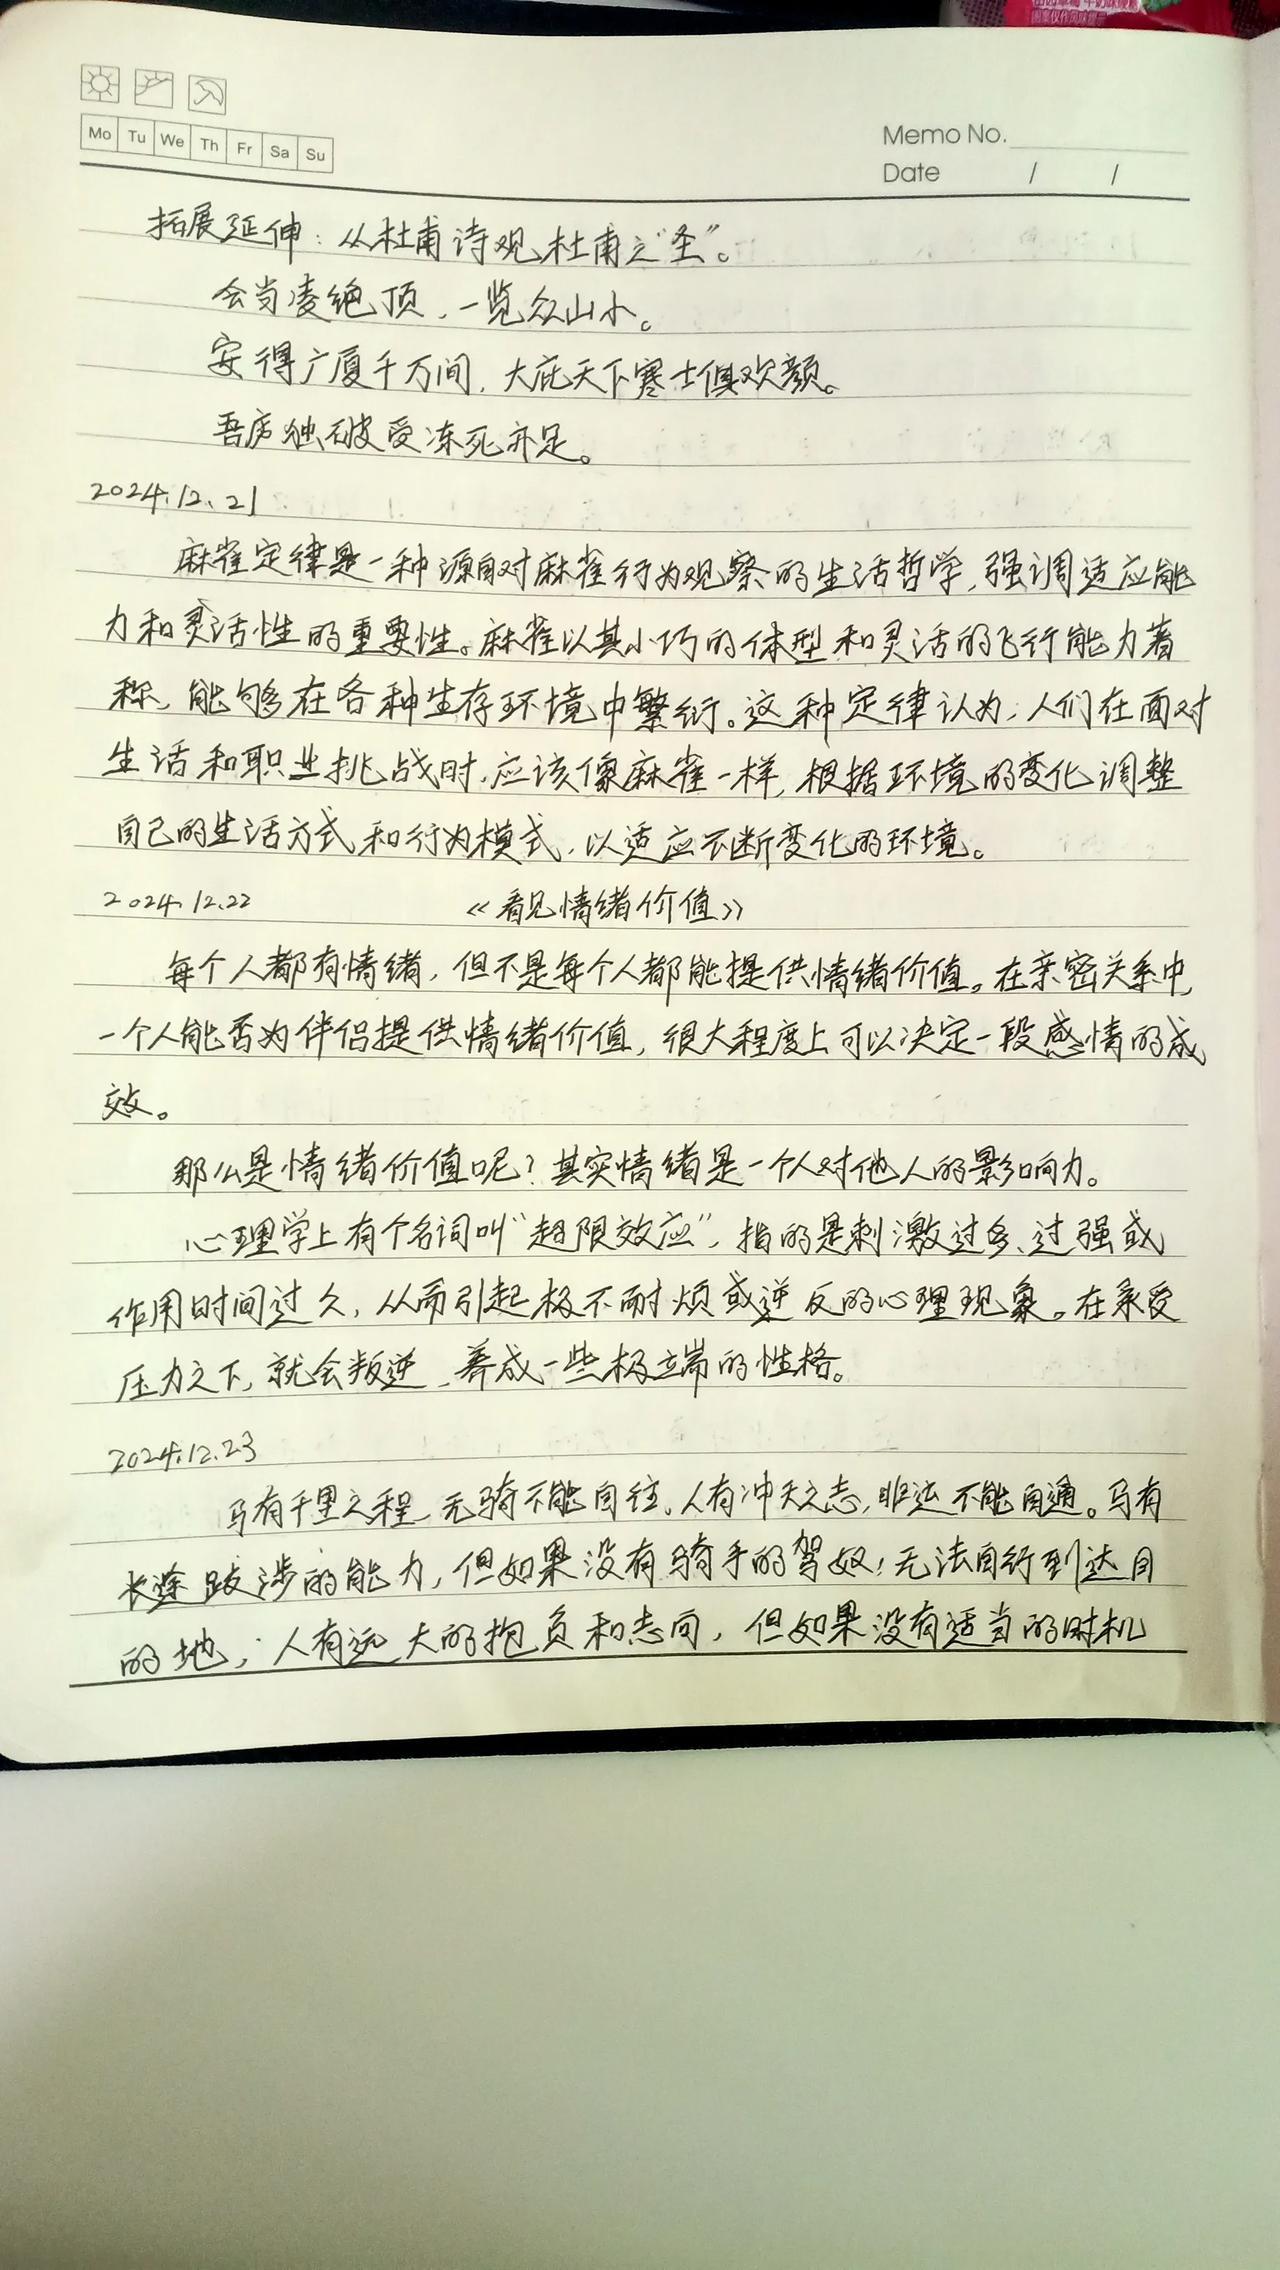 Mo Tu We Th Fr Sa Su
Memo No.
Date / /
拓展延伸：从杜甫诗观杜甫之“圣”。
会当凌绝顶，一览众山小。
安得广厦千万间，大庇天下寒士俱欢颜。
吾庐独破受冻死亦足。
2024.12.21
麻雀定律是一种源自对麻雀行为观察的生活哲学，强调适应能
力和灵活性的重要性。麻雀以其小巧的体型和灵活的飞行能力著
称，能够在各种生存环境中繁衍。这种定律认为，人们在面对
生活和职业挑战时，应该像麻雀一样，根据环境的变化调整
自己的生活方式和行为模式，以适应不断变化的环境。
2024.12.22 《看见情绪价值》
每个人都有情绪，但不是每个人都能提供情绪价值。在亲密关系中，
一个人能否为伴侣提供情绪价值，很大程度上可以决定一段感情的成
效。
那么是情绪价值呢？其实情绪是一个人对他人的影响力。
心理学上有个名词叫“超限效应”，指的是刺激过多、过强或
作用时间过久，从而引起极不耐烦或逆反的心理现象。在承受
压力之下，就会叛逆，养成一些极端的性格。
2024.12.23
马有千里之程，无骑不能自往。人有冲天之志，非运不能自通。马有
长途跋涉的能力，但如果没有骑手的驾奴，无法自行到达目
的地；人有远大的抱负和志向，但如果没有适当的时机